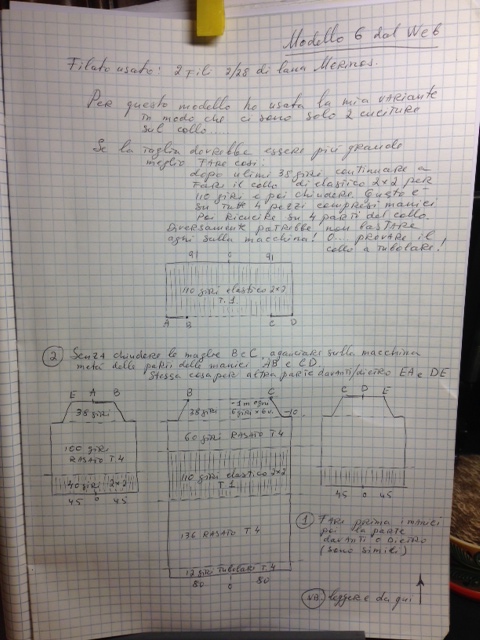 Modello 6 dal Web
Filato usato: 2 fili 2/28 di lana Merinos.
Per questo modello ho usata la mia variante
in modo che ci sono solo 2 cuciture
sul collo...
Se la taglia dovrebbe essere più grande
meglio fare così:
dopo ulimi 38 giri, continuare a
fare il collo di elastico 2x2 per
110 giri e poi chiudere. Questo è
su tutti 4 pezzi compresi manici
Poi ricucire su 4 parti del collo.
Diversamente patrebbe non bastare
agni sulla macchina! O... provare il
collo a tubolare!
91 0 91
110 giri elastico 2x2
T.1
A B C D
2 Senza chiudere le maglie B e C, aganciare sulla macchina
metà delle parti delle manici AB e CD.
Stessa cosa per altra parte davanti/dietro EA e DE
E A B
38 giri
100 giri
RASATO T.4
40 giri 2x2
45 0 45
B C
38 giri
-1 m ogni
6 giri x 6 v.
-10
60 giri RASATO T.4
110 giri elastico 2x2
T.1
136 RASATO T.4
12 giri Tubolari T.4
80 0 80
C D E
45 0 45
1 Fare prima manici
poi la parte
davanti e dietro
(sono simili)
NB leggere da qui